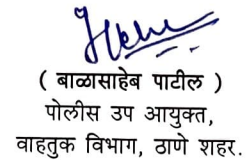 ( बाळासाहेब पाटील )
पोलीस उप आयुक्त,
वाहतुक विभाग, ठाणे शहर.